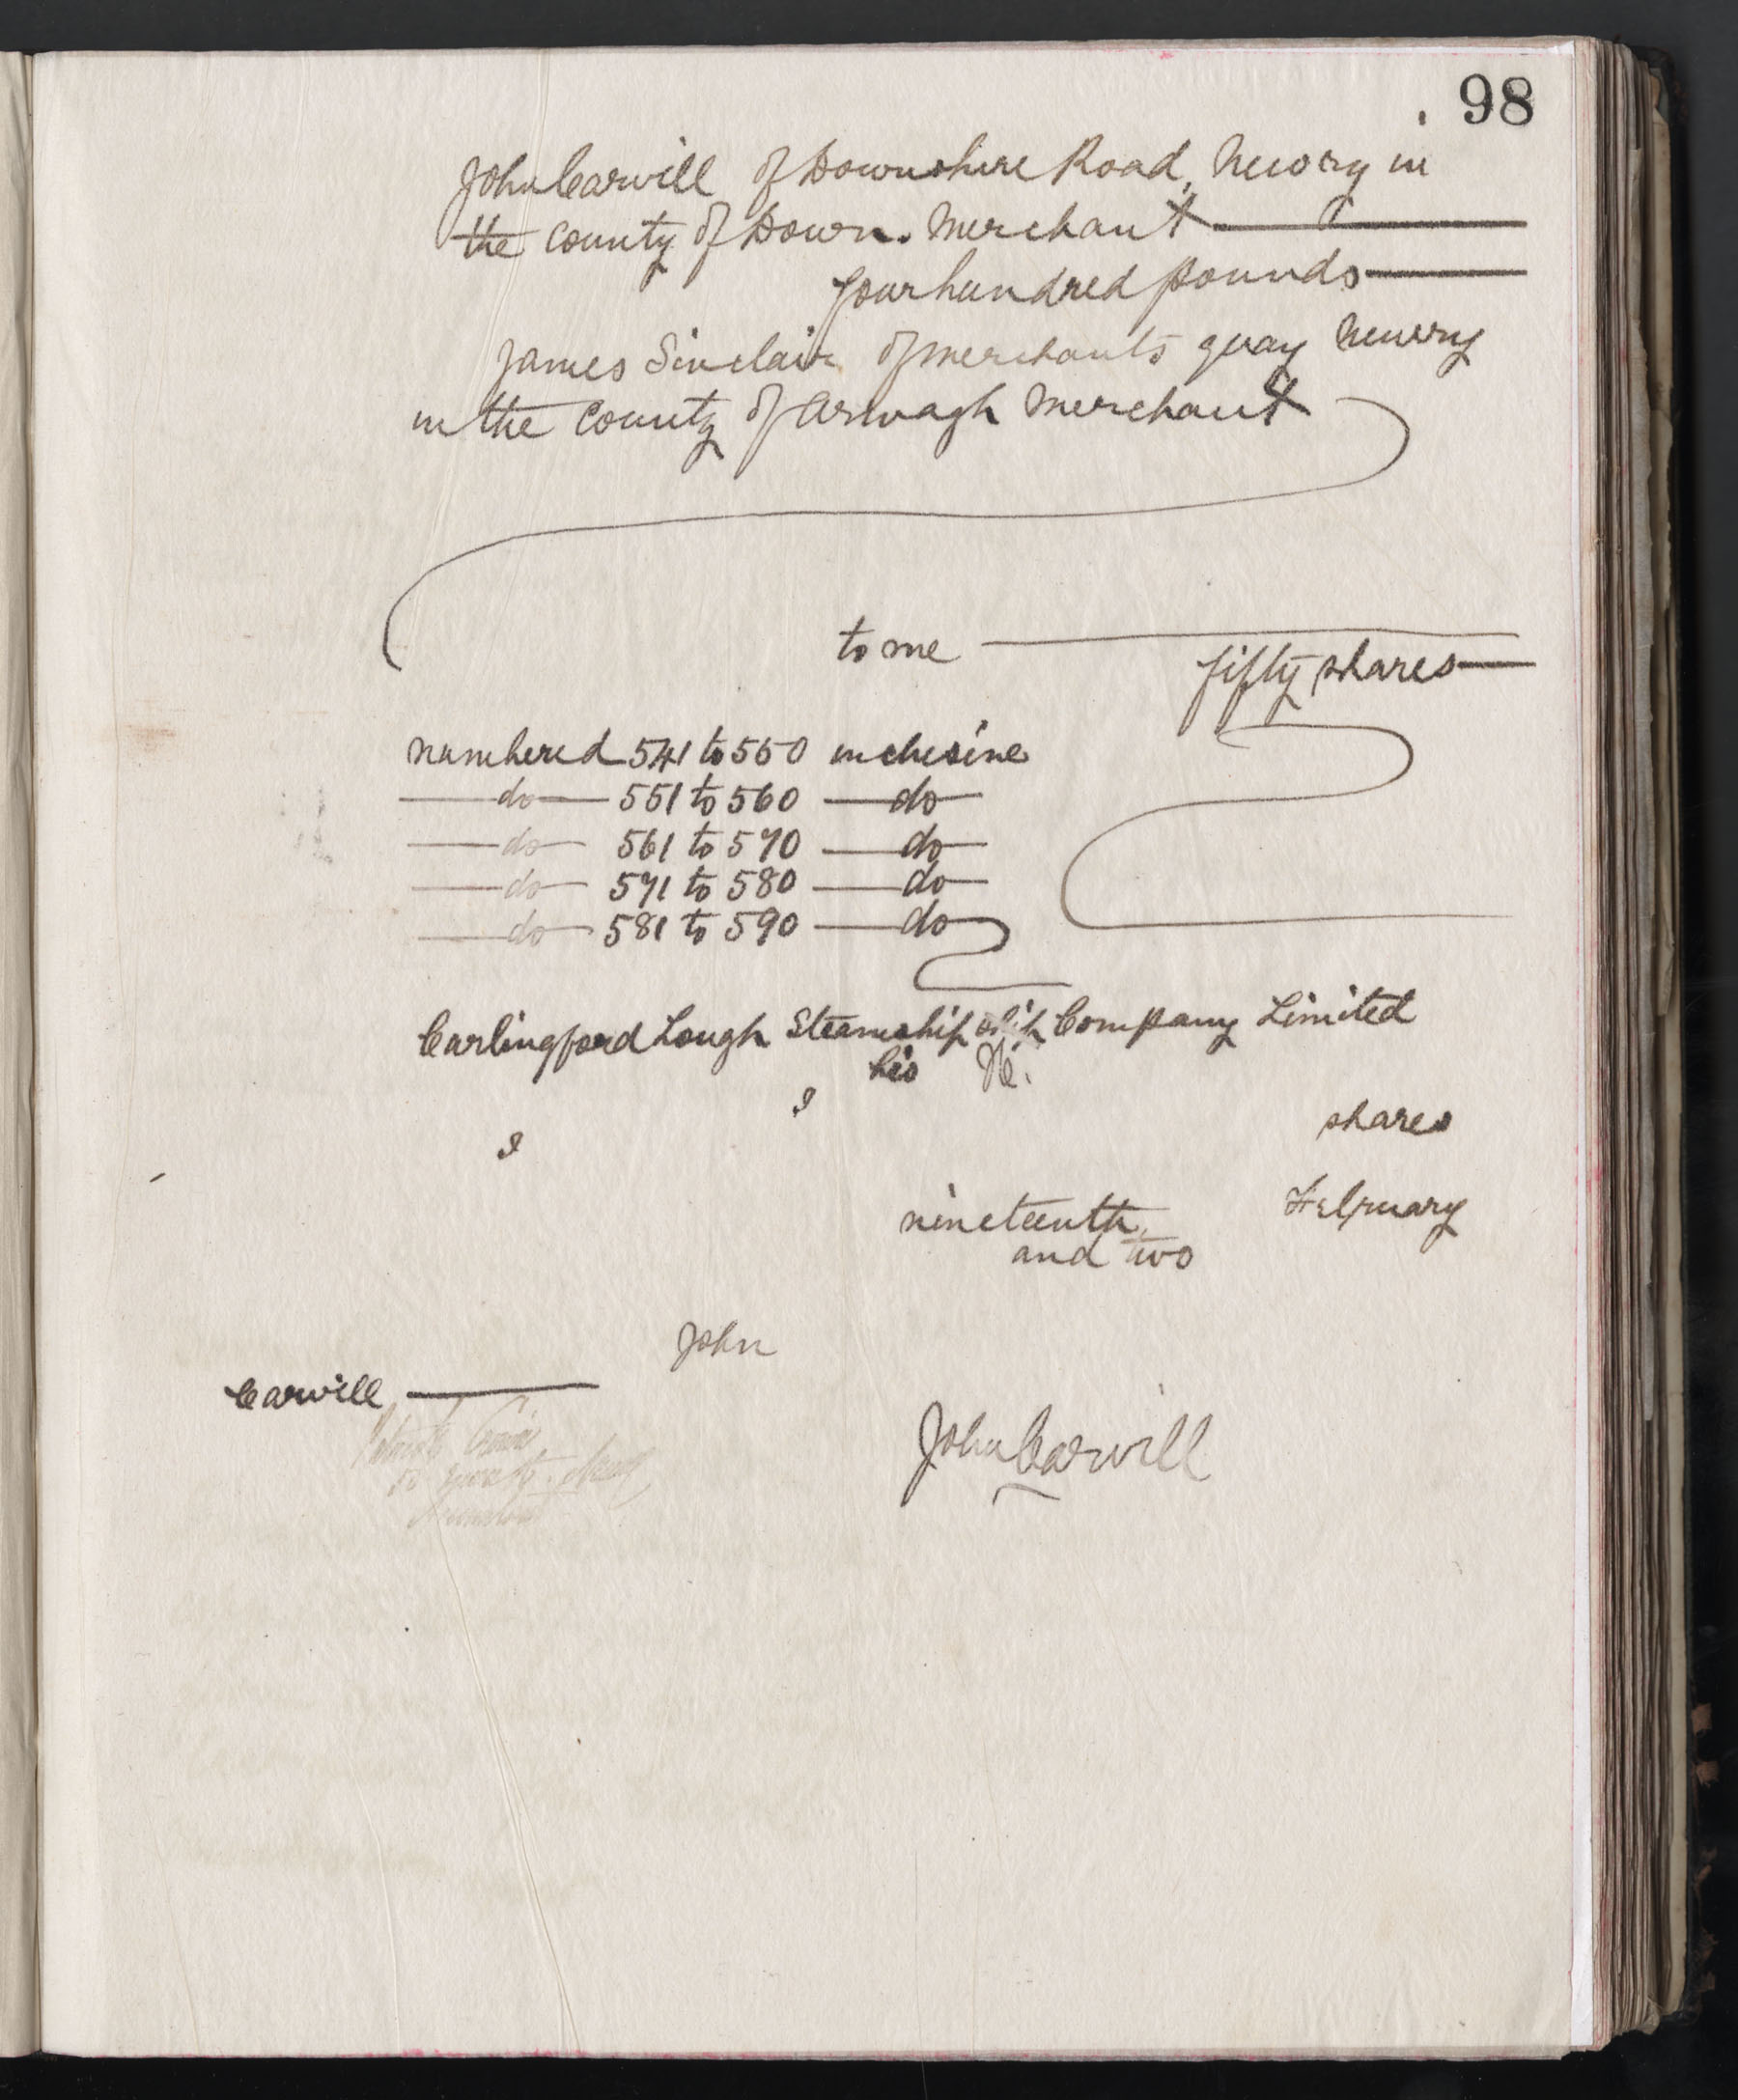 98
John Carvill of Downshire Road, Newry in
the County of Down. Merchant
four hundred pounds
James Sinclair of Merchants quay Newry
in the County of Armagh Merchant
to me
fifty shares
numbered 541 to 550 inclusive
do 551 to 560 do
do 561 to 570 do
do 571 to 580 do
do 581 to 590 do
Carlingford Lough Steamship ship Company Limited
his
I
shares
I
nineteenth February
and two
John
Carvill
John Carvill